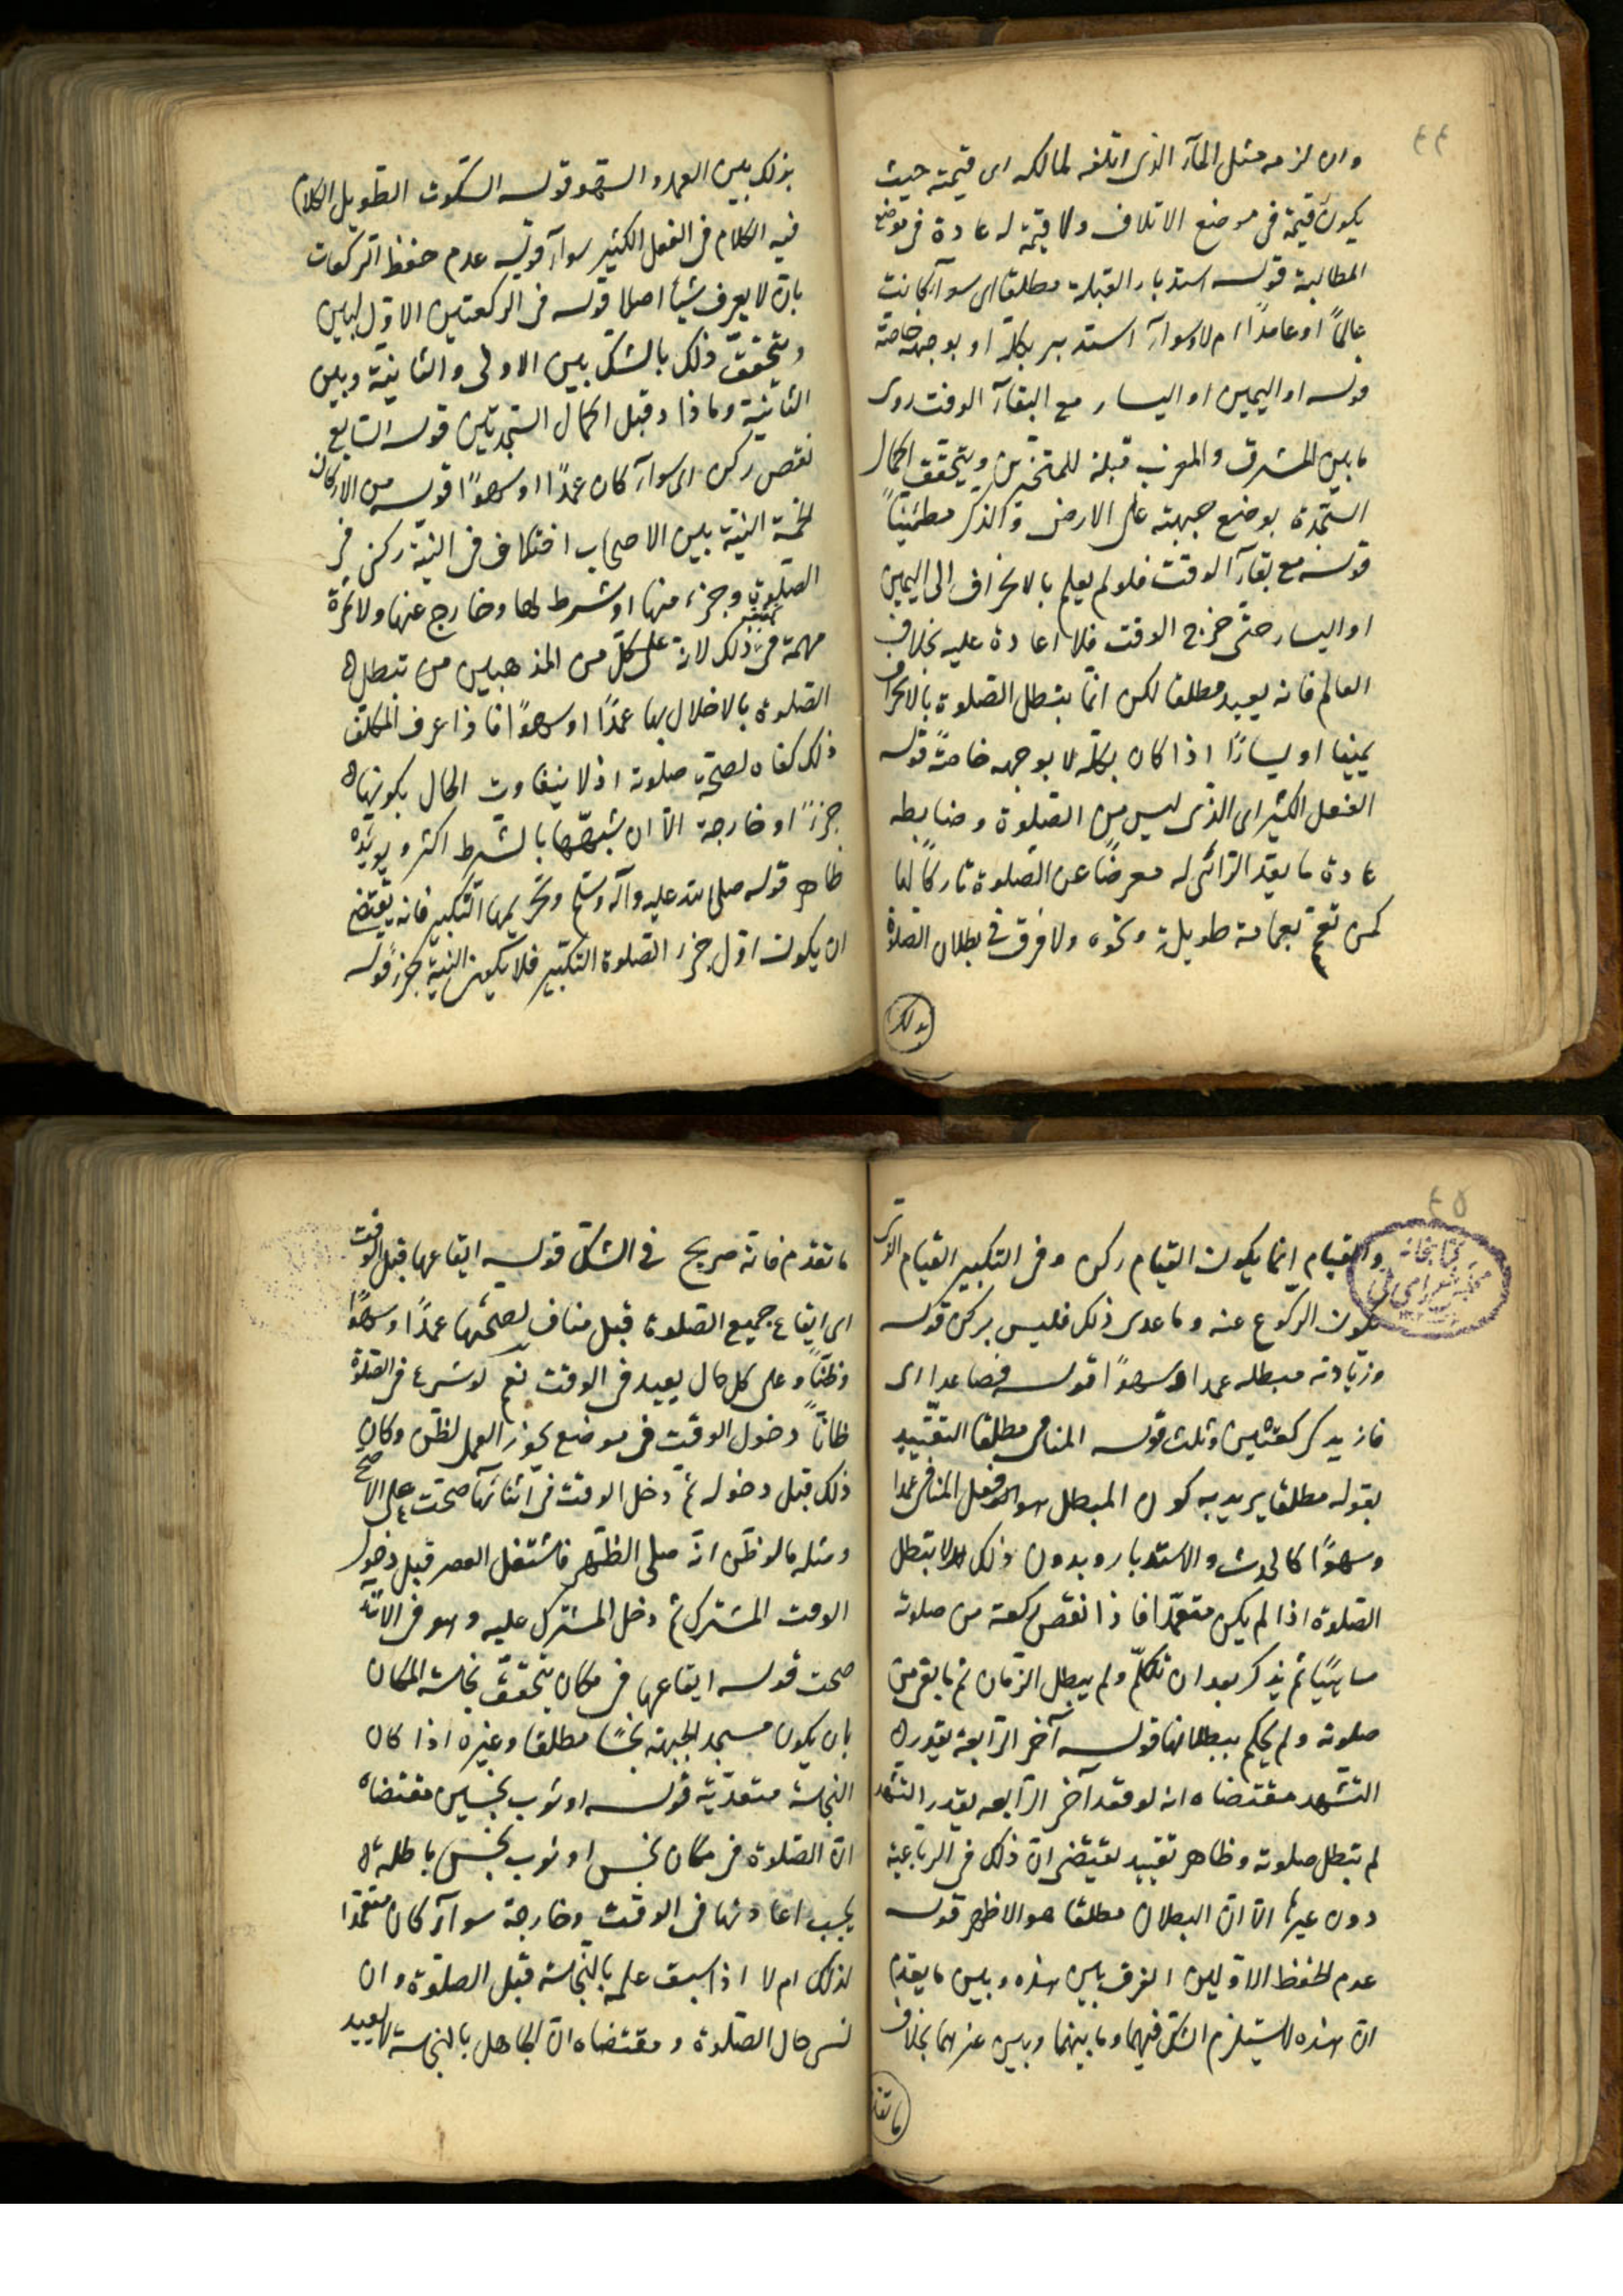 ٤٤
وان لزمه مثل المآء الذى اتلفه لمالكه اى قيمته حيث
يكون قيمة فى موضع الاتلاف ولا قيمة له عادة فى موضع
المطالبة قوله استدبار القبلة مطلقا اى سوآء كانت
عالماً او عامداً ام لا وسوآء استدبر بكله او بوجهه خاصة
قوله او اليمين او اليسار مع البقآء الوقت روى
ما بين المشرق والمغرب قبلة للمتحيرين ويتحقق اكمال
السجدة بوضع جبهته على الارض والذكر مطمئيناً
قوله مع بقآء الوقت فلو لم يعلم بالانحراف الى اليمين
او اليسار حتى خرج الوقت فلا اعادة عليه بخلاف
العالم فانه يعيد مطلقا لكن انما يبطل الصلوة بالانحراف
يمينا او يسارًا اذا كان بكله لا بوجهه خاصةً قوله
الفعل الكثير اى الذى ليس من الصلوة وضابطه
عادة ما يعد الرائى له معرضًا عن الصلوة تاركًا لها
كمن تعمم بعمامة طويلة ونحوه ولا فرق فى بطلان الصلوة
بذلك
بذلك بين العمد والسهو قوله السكوت الطويل الكلام
فيه الكلام فى الفعل الكثير سوآء قوله عدم حفظ الركعات
بان لا يعرف شيأ اصلا قوله فى الركعتين الاولبين
ويتحقق ذلك بالشك بين الاولى والثانية وبين
الثانية وما ذا د قبل اكمال السجدتين قوله السابع
نقص ركن اى سوآء كان عمدًا او سهوًا قوله من الاركان
الخمسة النية بين الاصحاب اختلاف فى النية ركن فى
الصلوة وجزء منها او شرط لها وخارج عنها ولا ثمرة
مهمة فى ذلك لانه على كل من المذهبين من تبطل
الصلوة بالاخلال بها عمدًا او سهوًا فاذا عرف المكلف
ذلك كفاه لصحة صلوته اذ لا يتفاوت الحال بكونها
جزءً او خارجة الا ان شبهها بالشرط اكثر ويؤيده
ظاهر قوله صلى الله عليه وآله وسلم وتحريمها التكبير فانه يقتضى
ان يكون اول جزء الصلوة التكبير فلا يكون النية بجزء قوله
٤٥
والقيام انما يكون القيام ركن وفى التكبير القيام الذى
يكون الركوع عنه وما عدى ذلك فليس بركن قوله
وزيادته مبطله عمدا وسهوًا قوله فصاعدا اى
فازيد كركعتين وثلث قوله المنافى مطلقا التقييد
بقوله مطلقا يريد به كون المبطل هو فعل المنافى عمدا
وسهوًا كالحدث والاستدبار وبدون ذلك لا تبطل
الصلوة اذا لم يكن متعمدا فاذا نقص ركعة من صلوته
ساهيًا ثم يذكر بعد ان تكلم ولم يبطل الزمان ثم ما بقى من
صلوته ولم يحكم ببطلانها قوله آخر الرابعة بقدر
التشهد مقتضاه انه لو قعد آخر الرابعه بقدر التشهد
لم تبطل صلوته وظاهر تقييد يقتضى ان ذلك فى الرباعية
دون غيرها الا ان البطلان مطلقا هو الاظهر قوله
عدم الحفظ الاولين الفرق بين هذه وبين ما يقدم
ان هذه لا يستلزم الشك فيهما وما بينهما وبين غيرهما بخلاف
ما تقد
ما تقدم فانه صريح فى الشك قوله ايقاعها قبل الوقت
اى ايقاع جميع الصلوة قبل مناف لصحتها عمدًا وسهوًا
وظنًا وعلى كل حال يعيد فى الوقت نعم لو شرع فى الصلوة
ظانًا دخول الوقت فى موضع يجوز العمل لظن وكان
ذلك قبل دخوله ثم دخل الوقت فى اثنائها صحت على الاصح
ومثله ما لو ظن انه صلى الظهر فاشتغل العصر قبل دخول
الوقت المشترك ثم دخل المشترك عليه وهو فى الاثنآء
صحت قوله ايقاعها فى مكان يتحقق نجاسة المكان
بان يكون مسجد الجبهة نجسًا مطلقا وغيره اذا كان
النجاسة متعدية قوله او ثوب نجسين مقتضاه
ان الصلوة فى مكان نجس او ثوب نجس باطلة
يجب اعادتها فى الوقت وخارجة سوآء كان متعمدًا
لذلك ام لا اذا سبق علمه بالنجاسة قبل الصلوة وان
نسى حال الصلوة ومقتضاه ان الجاهل بالنجاسة لا يعيد